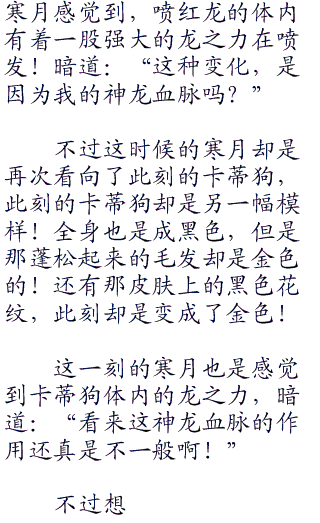 寒月感觉到，喷红龙的体内
有着一股强大的龙之力在喷
发！暗道：“这种变化，是
因为我的神龙血脉吗？”
不过这时候的寒月却是
再次看向了此刻的卡蒂狗，
此刻的卡蒂狗却是另一幅模
样！全身也是成黑色，但是
那蓬松起来的毛发却是金色
的！还有那皮肤上的黑色花
纹，此刻却是变成了金色！
这一刻的寒月也是感觉
到卡蒂狗体内的龙之力，暗
道：“看来这神龙血脉的作
用还真是不一般啊！”
不过想